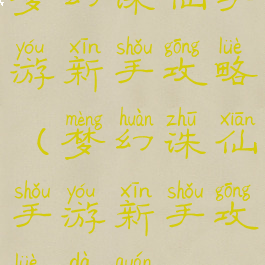 梦幻诛仙手
yóu xīn shǒu gōng lüè
游新手攻略
mèng huàn zhū xiān
（梦幻诛仙
shǒu yóu xīn shǒu gōng
手游新手攻
lüè dà quán